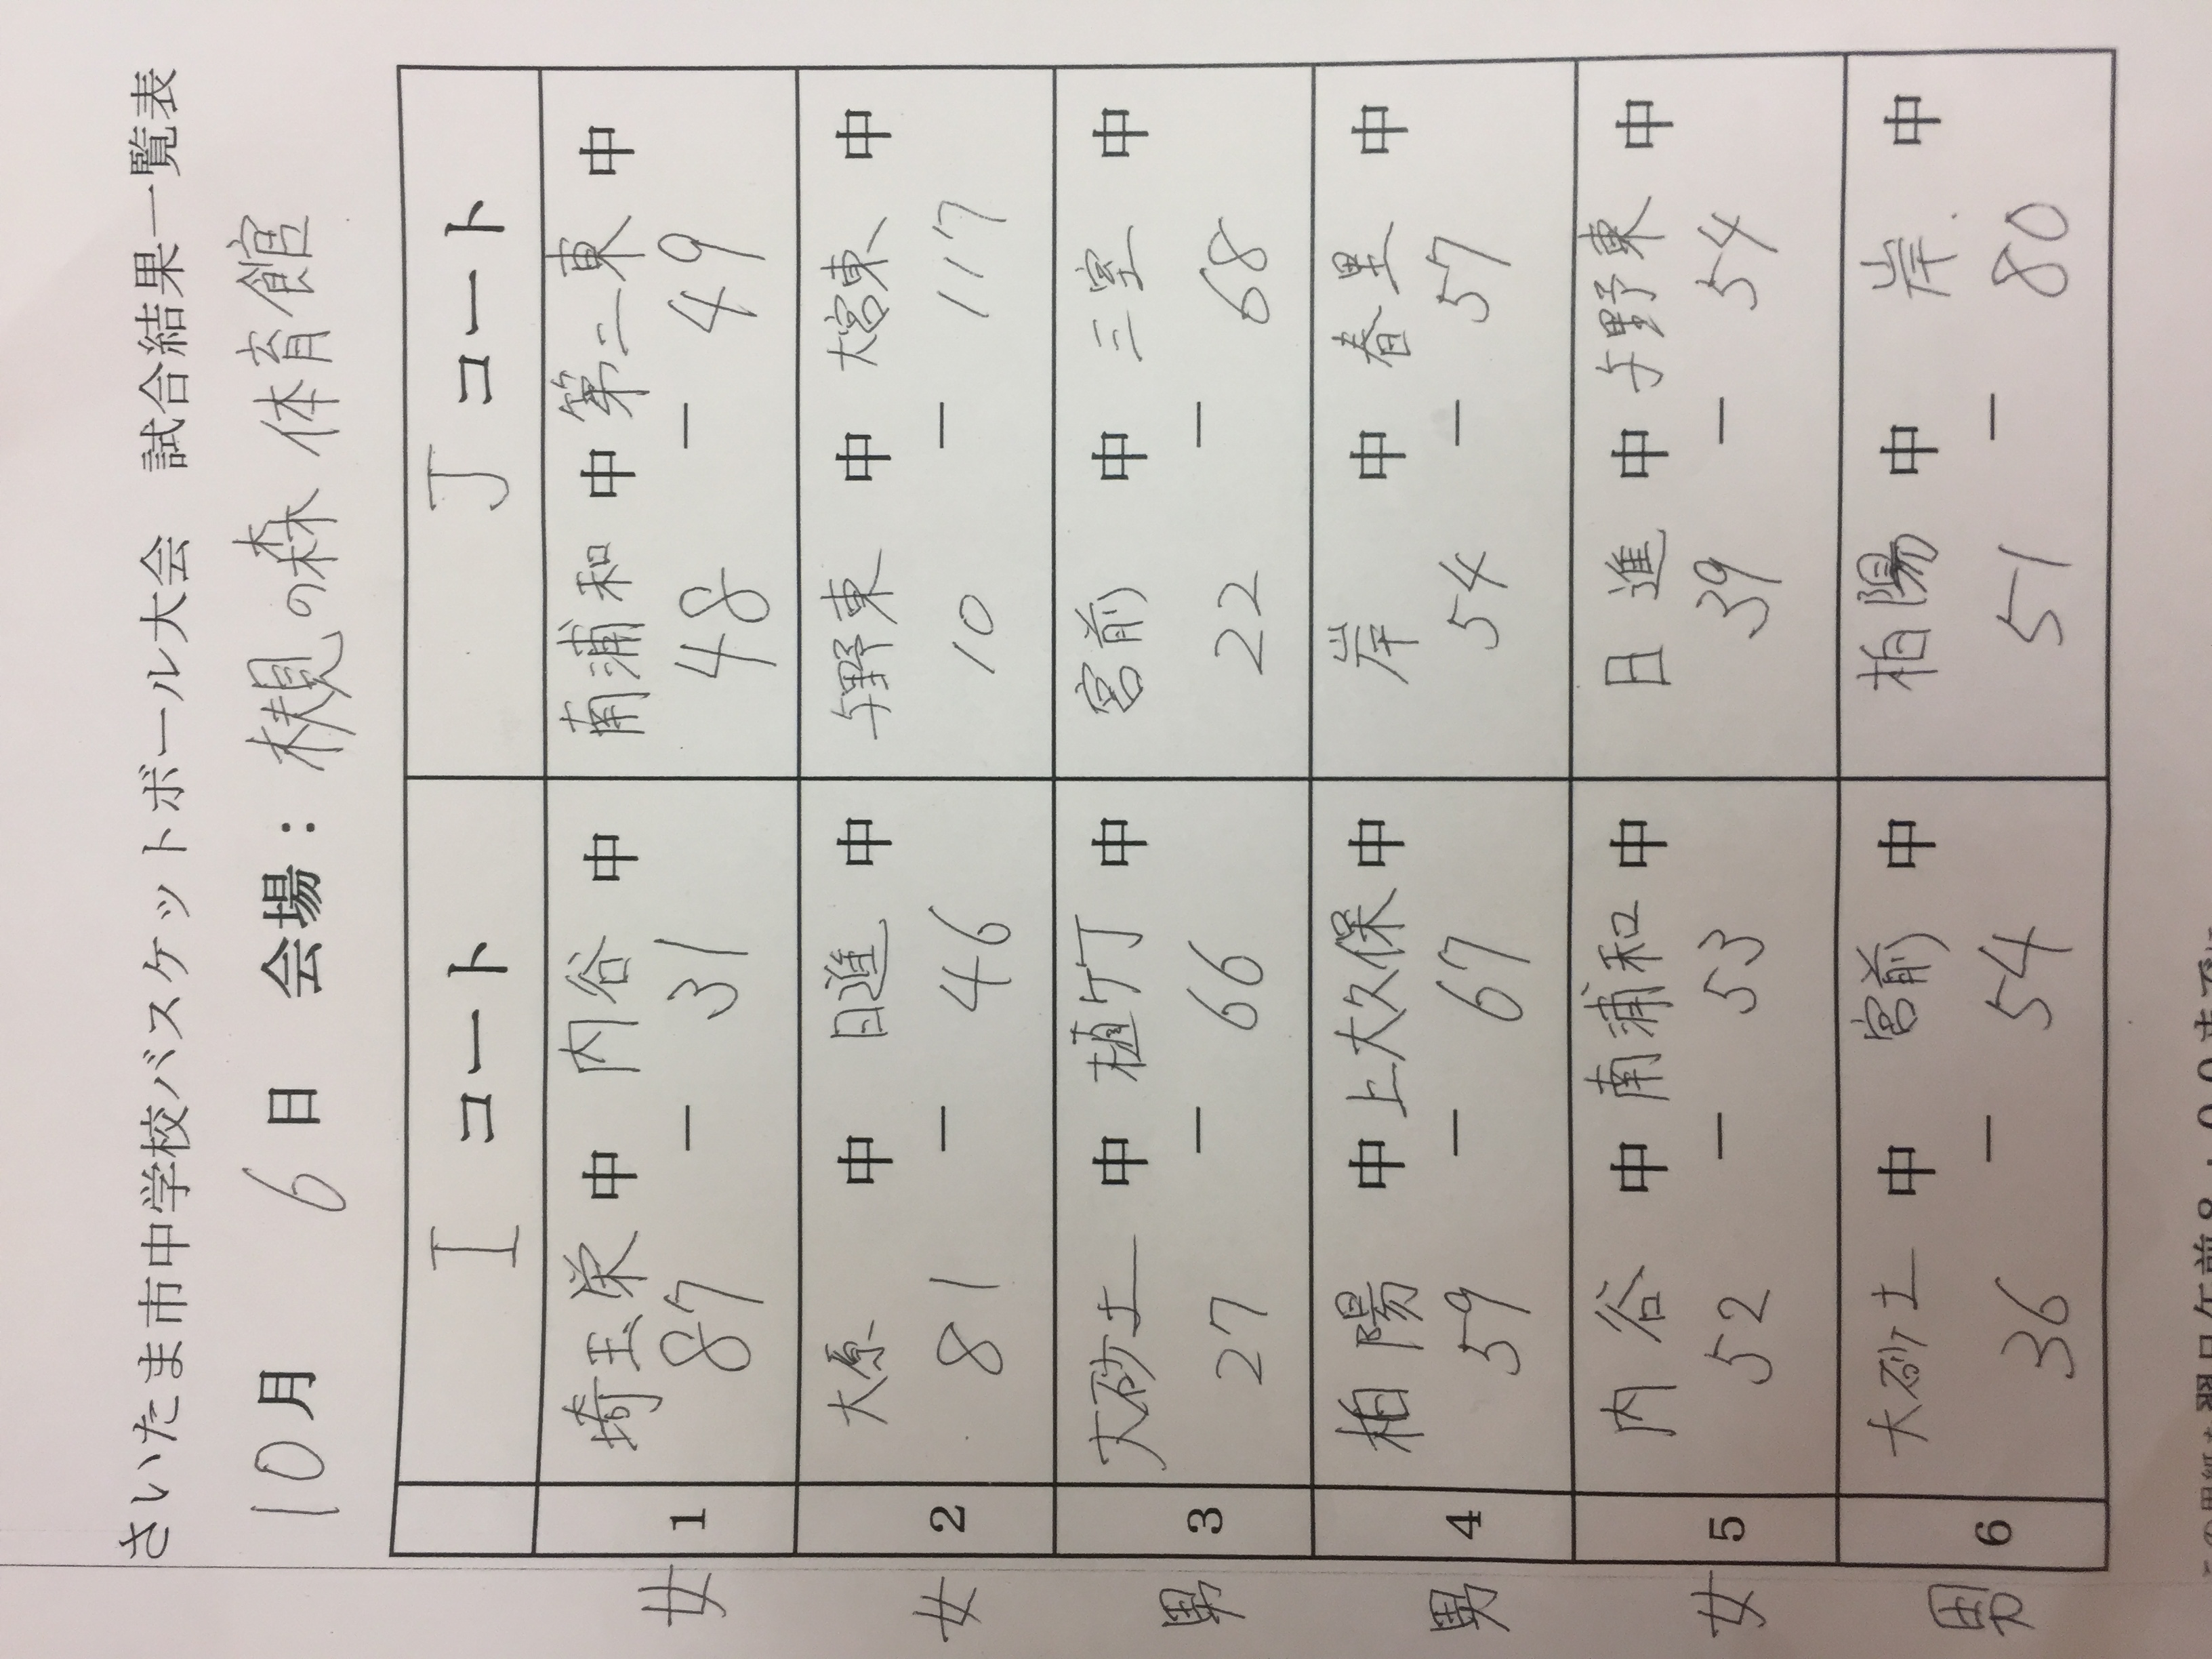 さいたま市中学校バスケットボール大会　試合結果一覧表
10月 6日 会場：槻の森体育館
I コート J コート
女 1 埼玉栄 中 内谷 中 南浦和 中 第二東 中
87 － 31 48 － 49
女 2 大原 中 日進 中 与野東 中 大宮東 中
81 － 46 10 － 117
男 3 大砂土 中 植竹 中 宮前 中 三室 中
27 － 66 22 － 68
男 4 柏陽 中 上大久保 中 岸 中 春里 中
59 － 67 54 － 57
女 5 内谷 中 南浦和 中 日進 中 与野東 中
52 － 53 39 － 54
男 6 大砂土 中 宮前 中 柏陽 中 岸 中
36 － 54 51 － 80